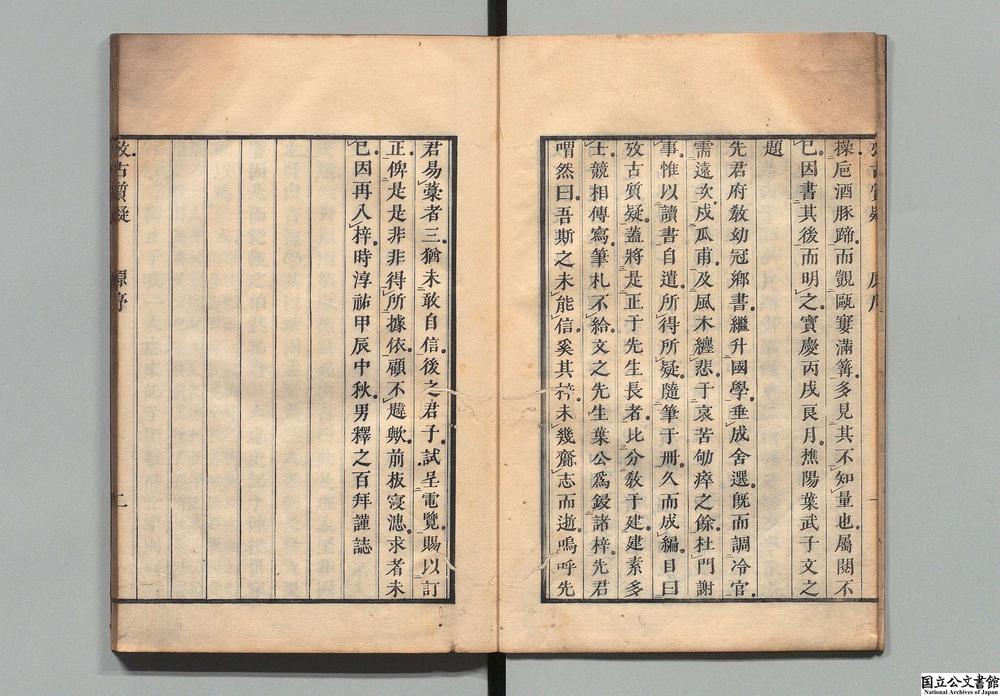 攷古質疑 原序 一
操巵酒豚蹄而觀甌窶滿篝多見其不知量也屬閱不
已因書其後而明之寶慶丙戌良月樵陽葉武子文之
題
先君府敎幼冠鄉書繼升國學垂成舍選旣而調冷官
需遠次戍瓜甫及風木纏悲于哀苦劬瘁之餘杜門謝
事惟以讀書自遣所得所疑隨筆于冊久而成編目曰
攷古質疑蓋將是正于先生長者比分敎于建建素多
士競相傳寫筆札不給文之先生葉公爲鋟諸梓先君
喟然曰吾斯之未能信奚其梓未幾齎志而逝嗚呼先
君易藁者三猶未敢自信後之君子試呈電覽賜以訂
正俾是是非非得所據依顧不韙歟前板寖漶求者未
已因再入梓時淳祐甲辰中秋男釋之百拜謹誌
攷古質疑 原序 二
国立公文書館
National Archives of Japan